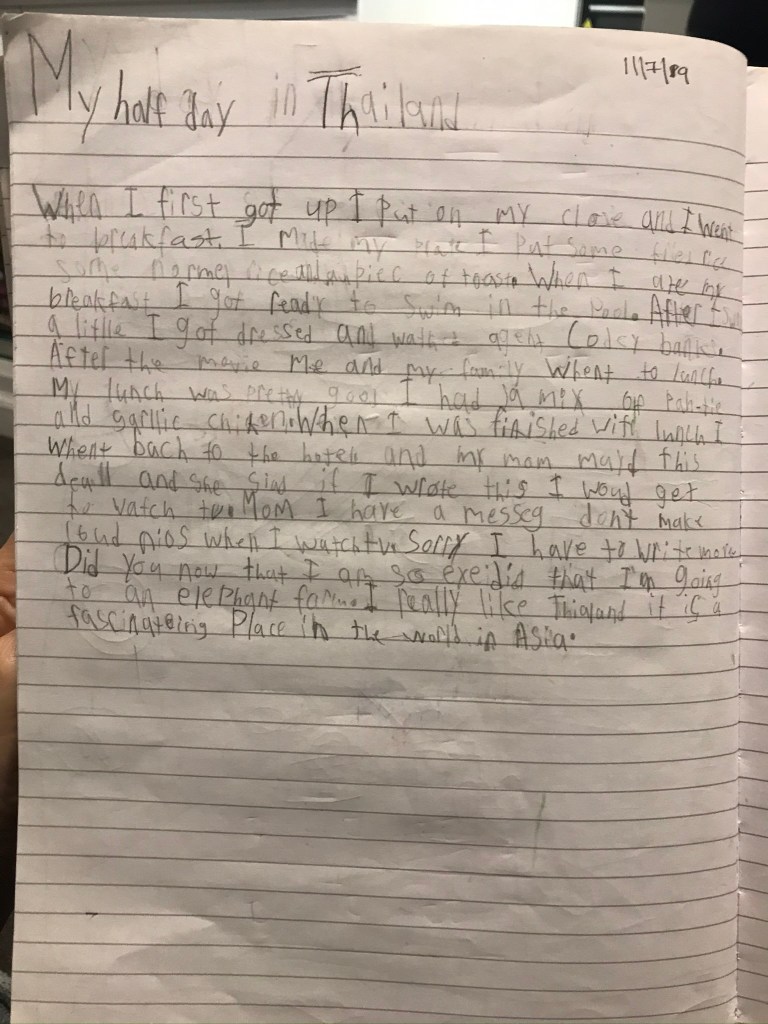 My half day in Thailand
11/7/19
When I first got up I put on my close and I went
to breakfast. I made my plate I put some
some normel rice and a piec of toast. When I ate my
breakfast I got ready to swim in the pool. After I
a little I got dressed and watch agent Codey banks.
After the movie me and my family Whent to lunch.
My lunch was pretty good I had a mix of Pah-tie
and garllic chiken. When I was finished with lunch I
Wheat bach to the hotell and my mom mayd this
deall and she siad if I wrote this I woud get
to watch tv. Mom I have a messeg don't make
loud nios when I watch tv. Sorry I have to write more
Did you now that I am so exeidid that I'm going
to an elephant farm. I really like Thialand it is a
fascinateing Place in the world in Asia.